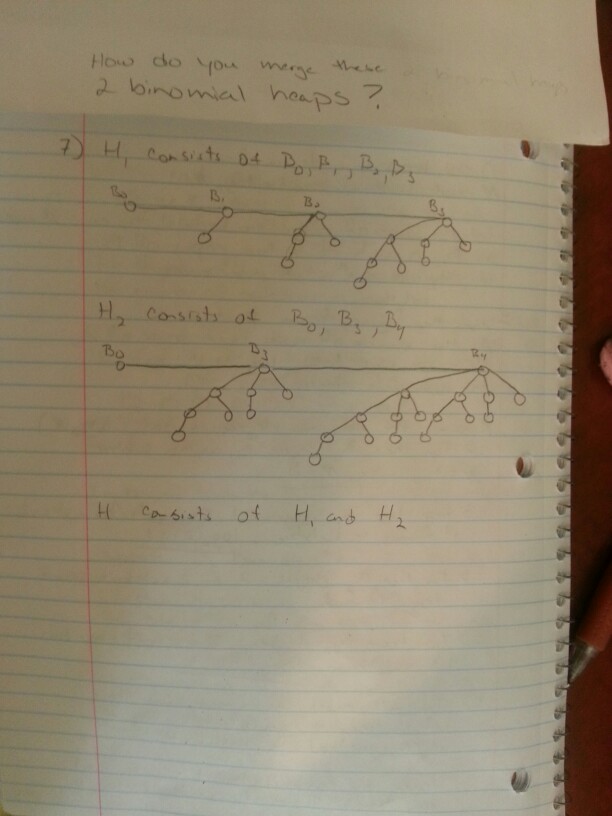 How do you merge these
2 binomial heaps?
7) H₁ consists of B₀, B₁, B₂, B₃
B₀ B₁ B₂ B₃
H₂ consists of B₀, B₃, B₄
B₀ B₃ B₄
H consists of H₁ and H₂